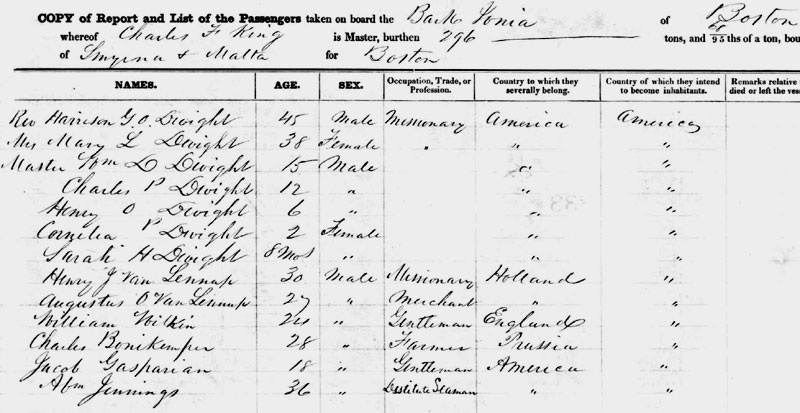 COPY of Report and List of the Passengers taken on board the Bark Ionia of Boston
whereof Charles F King is Master, burthen 296 tons, and /95 ths of a ton, bou
of Smyrna & Malta for Boston
NAMES. AGE. SEX. Occupation, Trade, or Profession. Country to which they severally belong. Country of which they intend to become inhabitants. Remarks relative died or left the ves
Rev Harrison G. O. Dwight 45 Male Missionary America America
Mrs Mary L Dwight 38 Female " " "
Master Wm D Dwight 15 Male " "
Charles P Dwight 12 " " "
Henry O Dwight 6 " " "
Cornelia P Dwight 2 Female " "
Sarah H Dwight 8 Mos " " "
Henry J Van Lennap 30 Male Missionary Holland "
Augustus O Van Lennap 27 " Merchant " "
William Wilkin 24 " Gentleman England "
Charles Bonekemper 28 " Farmer Prussia "
Jacob Gasparian 18 " Gentleman America "
Abm Jennings 36 " Destitute Seaman " "